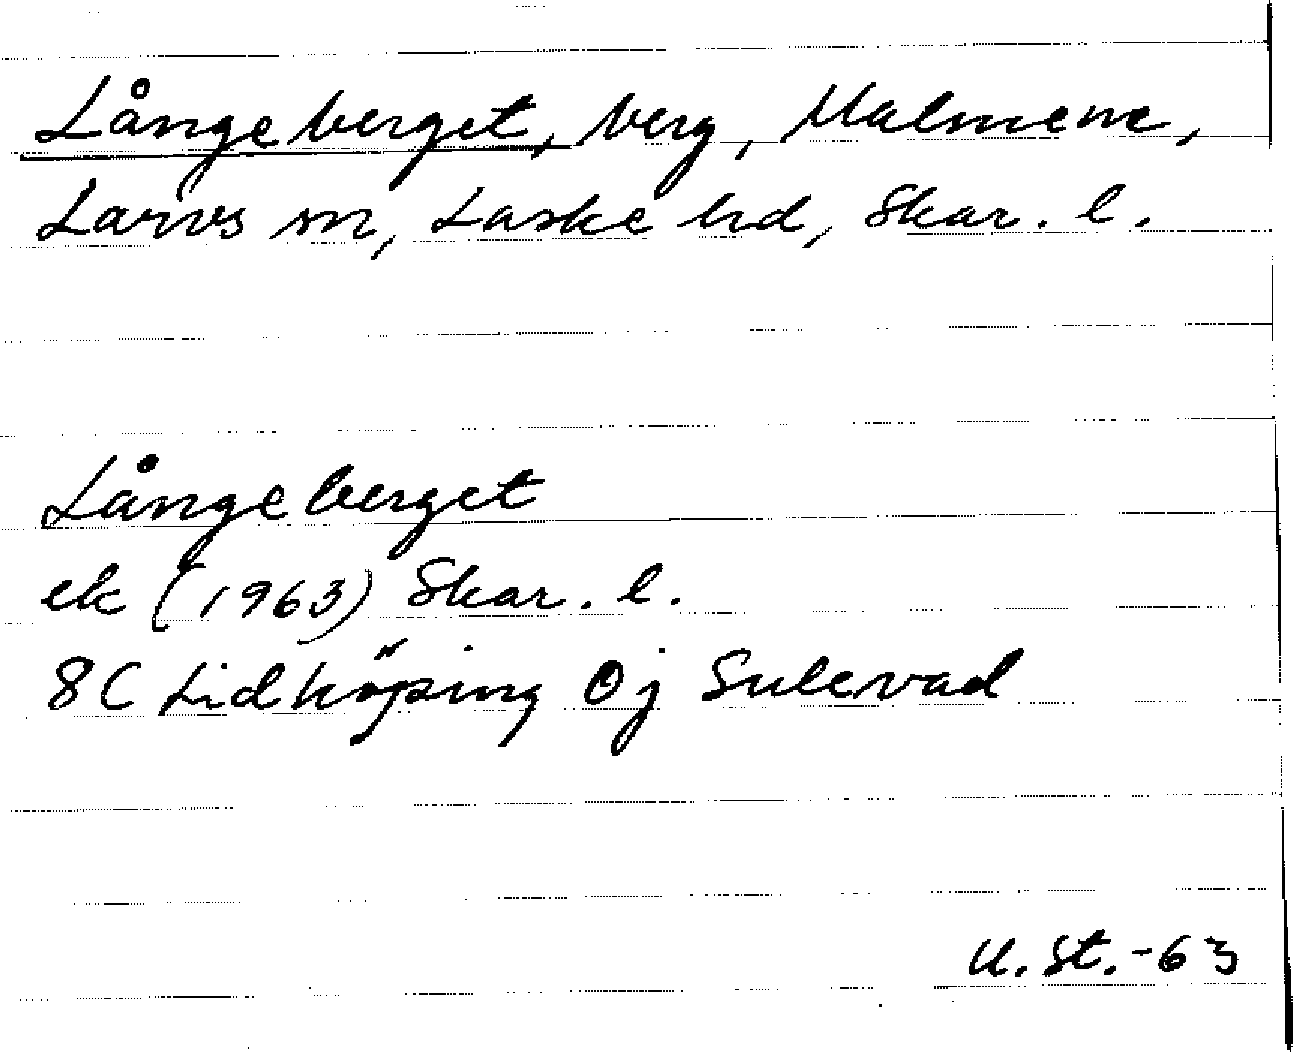 Långeberget, berg, Malmene,
Larvs sn, Laske hd, Skar. l.
Långeberget
ek (1963) Skar. l.
8C Lidköping 0j Sulevad
U. St. -63